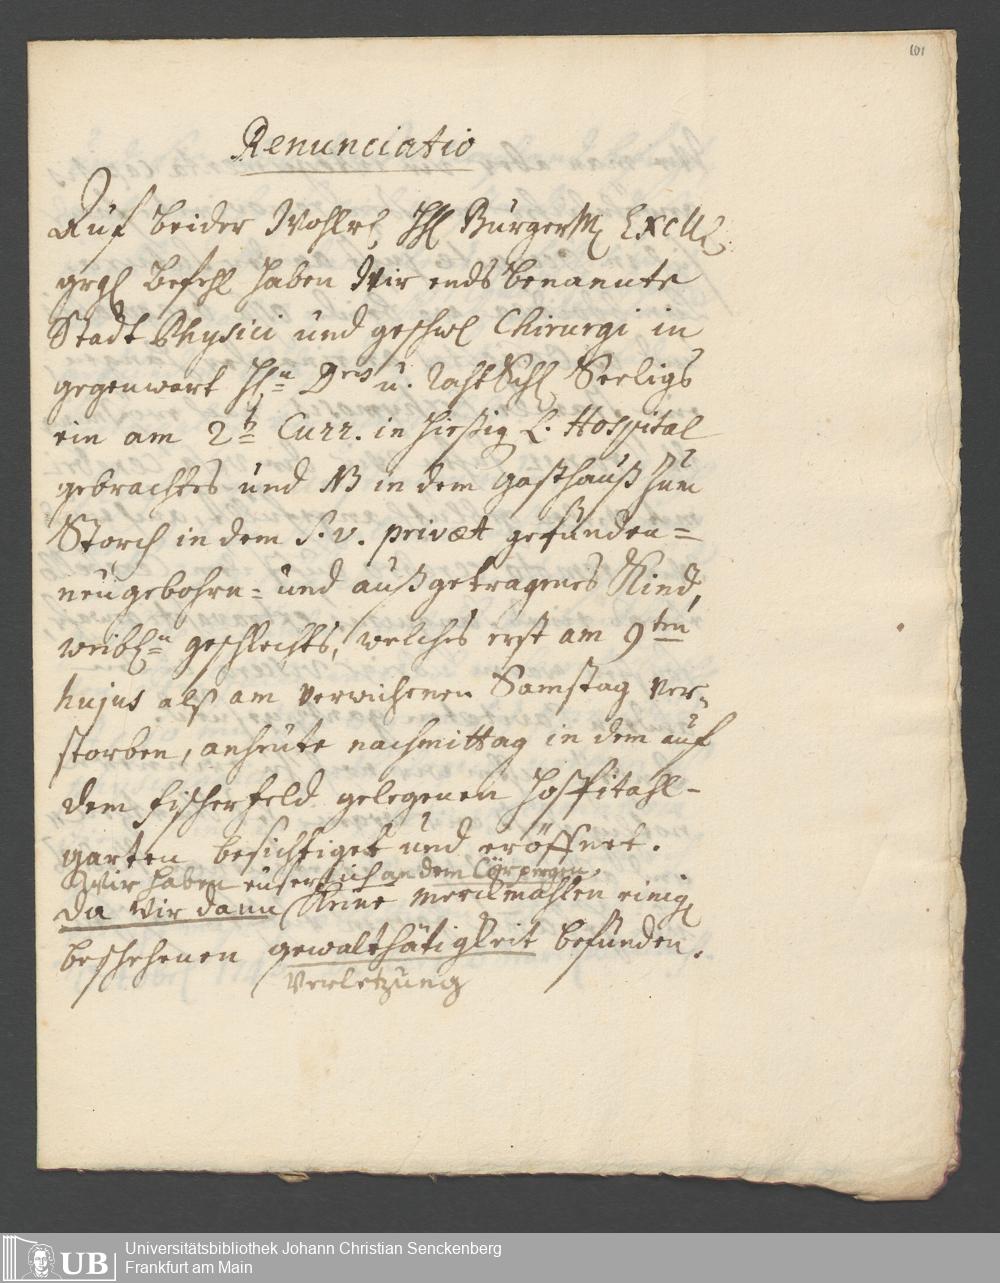 101
Renunciatio
Auf beider Wohlrl HH Burgerm Excll
grgl befehl haben Wir endsbenannte
Stadt Physici und geschwl Chirurgi in
gegenwart Hn Dris u. Raht Schl Seeligs
ein am 2t Curr. in hießig L. Hospital
gebrachtes und NB in dem gasthauß zum
Storch in dem S. v. privæt gefunden=
neugebohrn= und außgetragenes Kind,
weibln geschlechts, welches erst am 9ten
hujus alß am verwichenen Samstag ver=
storben, anheute nachmittag in dem auf
dem fischerfeld gelegenen hospitahl-
garten besichtiget und eröffnet.
Wir haben euserlich an dem Cörpergen,
da wir dann Keine merckmahlen einig
beschehenen gewaltthätigkeit befunden.
Verletzung
UB
Universitätsbibliothek Johann Christian Senckenberg
Frankfurt am Main